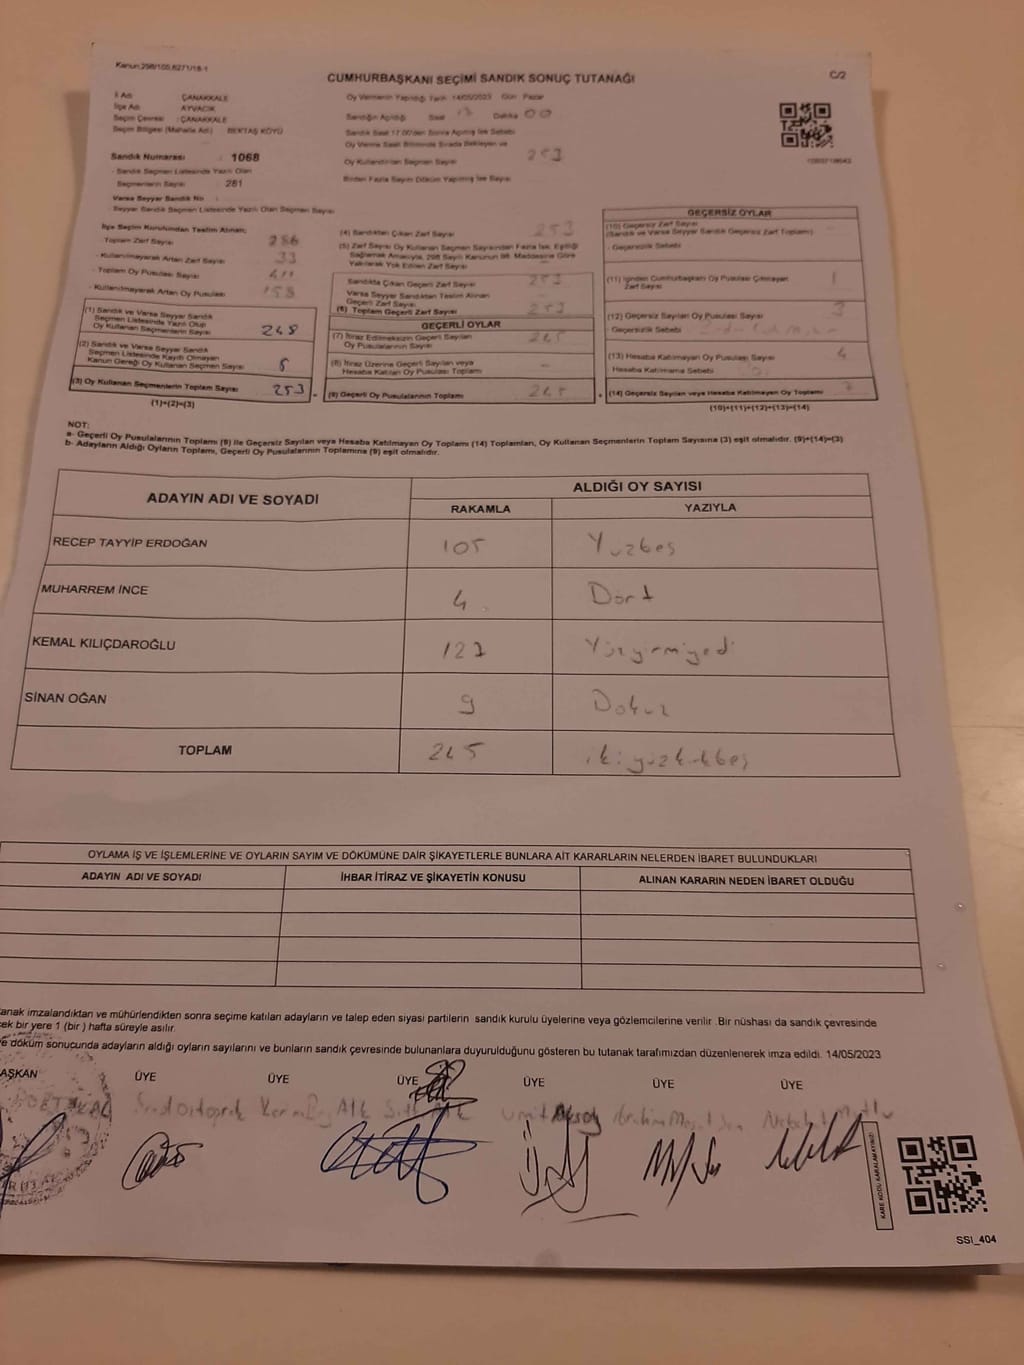 Kanun:298/100,6271/18-1
CUMHURBAŞKANI SEÇİMİ SANDIK SONUÇ TUTANAĞI
C/2
İl Adı : ÇANAKKALE
İlçe Adı : AYVACIK
Seçim Çevresi : ÇANAKKALE
Seçim Bölgesi (Mahalle Adı) : BEKTAŞ KÖYÜ
Sandık Numarası : 1068
- Sandık Seçmen Listesinde Yazılı Olan
Seçmenlerin Sayısı : 281
Varsa Seyyar Sandık No :
- Seyyar Sandık Seçmen Listesinde Yazılı Olan Seçmen Sayısı
Oy Vermenin Yapıldığı Tarih 14/05/2023 Gün Pazar
Sandığın Açıldığı Saat 17 Dakika 00
Sandık Saat 17.00'den Sonra Açılmış İse Sebebi
Oy Verme Saati Bitiminde Sırada Bekleyen ve
Oy Kullandırılan Seçmen Sayısı 253
Birden Fazla Sayım Döküm Yapılmış İse Sayısı
İlçe Seçim Kurulundan Teslim Alınan;
- Toplam Zarf Sayısı 286
- Kullanılmayarak Artan Zarf Sayısı 33
- Toplam Oy Pusulası Sayısı
- Kullanılmayarak Artan Oy Pusulası 158
(1) Sandık ve Varsa Seyyar Sandık
Seçmen Listesinde Yazılı Olup
Oy Kullanan Seçmenlerin Sayısı 248
(2) Sandık ve Varsa Seyyar Sandık
Seçmen Listesinde Kayıtlı Olmayan
Kanun Gereği Oy Kullanan Seçmen Sayısı
(3) Oy Kullanan Seçmenlerin Toplam Sayısı 253
(1)+(2)=(3)
(4) Sandıktan Çıkan Zarf Sayısı 253
(5) Zarf Sayısı Oy Kullanan Seçmen Sayısından Fazla İse, Eşitliği
Sağlamak Amacıyla, 298 Sayılı Kanunun 98. Maddesine Göre
Yakılarak Yok Edilen Zarf Sayısı –
Sandıkta Çıkan Geçerli Zarf Sayısı 253
Varsa Seyyar Sandıktan Teslim Alınan
Geçerli Zarf Sayısı –
(6) Toplam Geçerli Zarf Sayısı 253
GEÇERLİ OYLAR
(7) İtiraz Edilmeksizin Geçerli Sayılan
Oy Pusulalarının Sayısı 245
(8) İtiraz Üzerine Geçerli Sayılan veya
Hesaba Katılan Oy Pusulası Toplamı –
(9) Geçerli Oy Pusulalarının Toplamı 245
GEÇERSİZ OYLAR
(10) Geçersiz Zarf Sayısı
(Sandık ve Varsa Seyyar Sandık Geçersiz Zarf Toplamı)
- Geçersizlik Sebebi
(11) İçinden Cumhurbaşkanı Oy Pusulası Çıkmayan
Zarf Sayısı 1
(12) Geçersiz Sayılan Oy Pusulası Sayısı 3
- Geçersizlik Sebebi
(13) Hesaba Katılmayan Oy Pusulası Sayısı 4
Hesaba Katılmama Sebebi
(14) Geçersiz Sayılan veya Hesaba Katılmayan Oy Toplamı
(10)+(11)+(12)+(13)=(14)
NOT:
a- Geçerli Oy Pusulalarının Toplamı (9) ile Geçersiz Sayılan veya Hesaba Katılmayan Oy Toplamı (14) Toplamları, Oy Kullanan Seçmenlerin Toplam Sayısına (3) eşit olmalıdır. (9)+(14)=(3)
b- Adayların Aldığı Oyların Toplamı, Geçerli Oy Pusulalarının Toplamına (9) eşit olmalıdır.
ADAYIN ADI VE SOYADI
ALDIĞI OY SAYISI
RAKAMLA YAZIYLA
RECEP TAYYİP ERDOĞAN 105 Yüzbeş
MUHARREM İNCE 4 Dört
KEMAL KILIÇDAROĞLU 127 Yüzyirmiyedi
SİNAN OĞAN 9 Dokuz
TOPLAM 245 ikiyüzkırkbeş
OYLAMA İŞ VE İŞLEMLERİNE VE OYLARIN SAYIM VE DÖKÜMÜNE DAİR ŞİKAYETLERLE BUNLARA AİT KARARLARIN NELERDEN İBARET BULUNDUKLARI
ADAYIN ADI VE SOYADI İHBAR İTİRAZ VE ŞİKAYETİN KONUSU ALINAN KARARIN NEDEN İBARET OLDUĞU
anak imzalandıktan ve mühürlendikten sonra seçime katılan adayların ve talep eden siyasi partilerin sandık kurulu üyelerine veya gözlemcilerine verilir .Bir nüshası da sandık çevresinde
ek bir yere 1 (bir ) hafta süreyle asılır.
e döküm sonucunda adayların aldığı oyların sayılarını ve bunların sandık çevresinde bulunanlara duyurulduğunu gösteren bu tutanak tarafımızdan düzenlenerek imza edildi. 14/05/2023
AŞKAN ÜYE ÜYE ÜYE ÜYE ÜYE ÜYE
Ümit Aksoy
KARE KODU KARALAMAYINIZ!
SSI_404